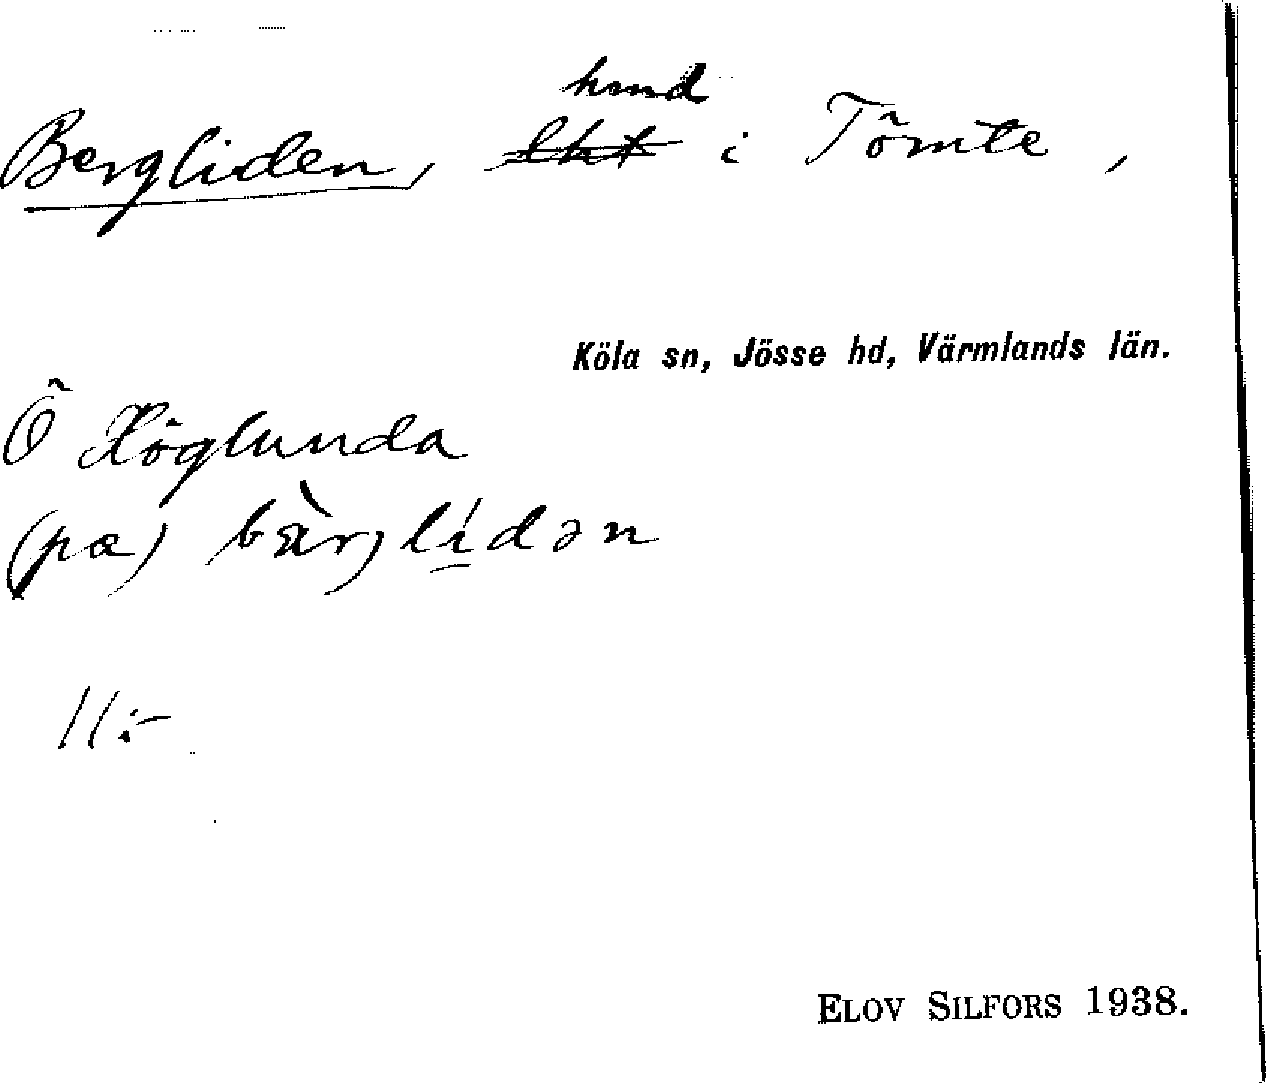 hmd
Bergliden, lht i Tömte,
Köla sn, Jösse hd, Värmlands län.
Ö Höglunda
(pæ) bærjlidən
11:-
ELOV SILFORS 1938.